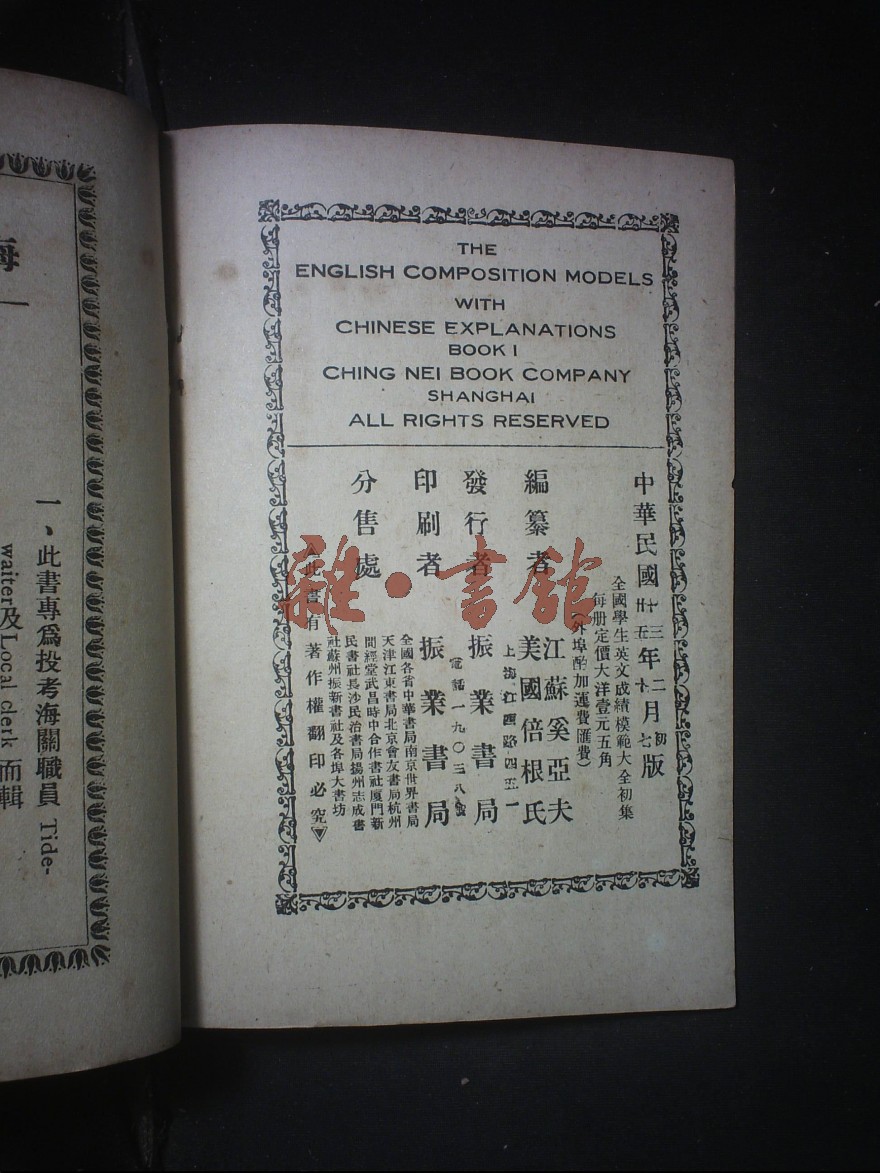 THE
ENGLISH COMPOSITION MODELS
WITH
CHINESE EXPLANATIONS
BOOK I
CHING NEI BOOK COMPANY
SHANGHAI
ALL RIGHTS RESERVED
中華民國
十三年二月初
廿五年十七
版
全國學生英文成績模範大全初集
每册定價大洋壹元五角
(外埠酌加運費匯費)
編纂者
江蘇奚亞夫
美國倍根氏
發行者
振業書局
上海江西路四五一
電話一九〇三八號
印刷者
振業書局
分售處
全國各省中華書局南京世界書局
天津江東書局北京會友書局杭州
問經堂武昌時中合作書社厦門新
民書社長沙民治書局揚州志成書
社蘇州振新書社及各埠大書坊
此書有著作權翻印必究
雜·書館
海
一、此書專爲投考海關職員 Tide-
waiter及Local clerk 而輯